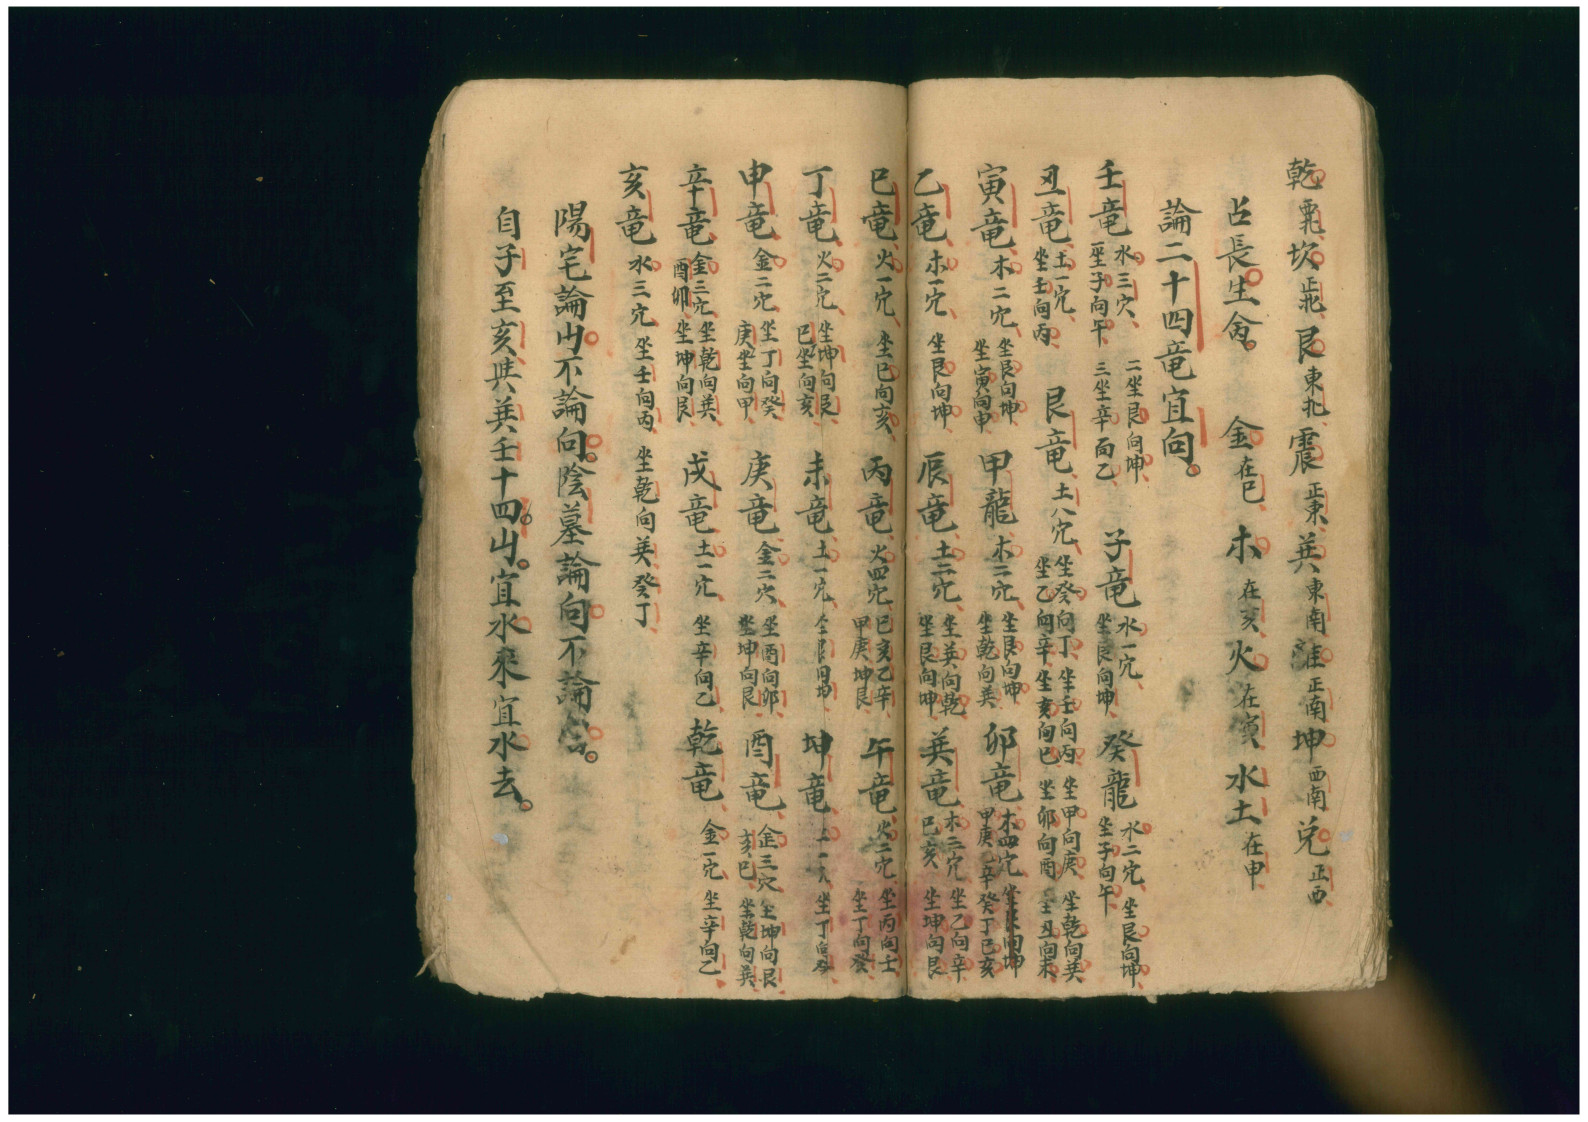 乾西北坎正北艮東北震正東巽東南離正南坤西南兌正西
占長生禽。金在巳木在亥火在寅水土在申
論二十四竜宜向。
壬竜水三穴坐子向午二坐艮向坤三坐辛向乙子竜水一穴坐艮向坤癸龍水二穴坐子向午坐艮向坤
丑竜土一穴坐壬向丙艮竜土八穴坐癸向丁坐乙向辛坐壬向丙坐亥向巳坐甲向庚坐卯向酉坐乾向巽坐丑向未
寅竜木二穴坐艮向坤坐寅向申甲龍木二穴坐艮向坤坐乾向巽卯竜木四穴甲庚乙辛癸丁巳亥坐艮向坤
乙竜木一穴坐艮向坤辰竜土二穴坐巽向乾坐艮向坤巽竜木二穴巳亥坐乙向辛坐坤向艮
巳竜火一穴坐巳向亥丙竜火四穴巳亥乙辛甲庚坤艮午竜火二穴坐丙向壬坐丁向癸
丁竜火二穴坐坤向艮巳坐向亥未竜土一穴坐艮向坤坤竜土一穴坐丁向癸
申竜金二穴坐丁向癸庚坐向甲庚竜金二穴坐酉向卯坐坤向艮酉竜金三穴亥巳坐坤向艮坐乾向巽
辛竜金三穴酉卯坐乾向巽坐坤向艮戌竜土一穴坐辛向乙乾竜金一穴坐辛向乙
亥竜水三穴坐壬向丙坐乾向巽癸丁
陽宅論山不論向。陰墓論向不論山。
自子至亥共巽壬十四山。宜水來宜水去。